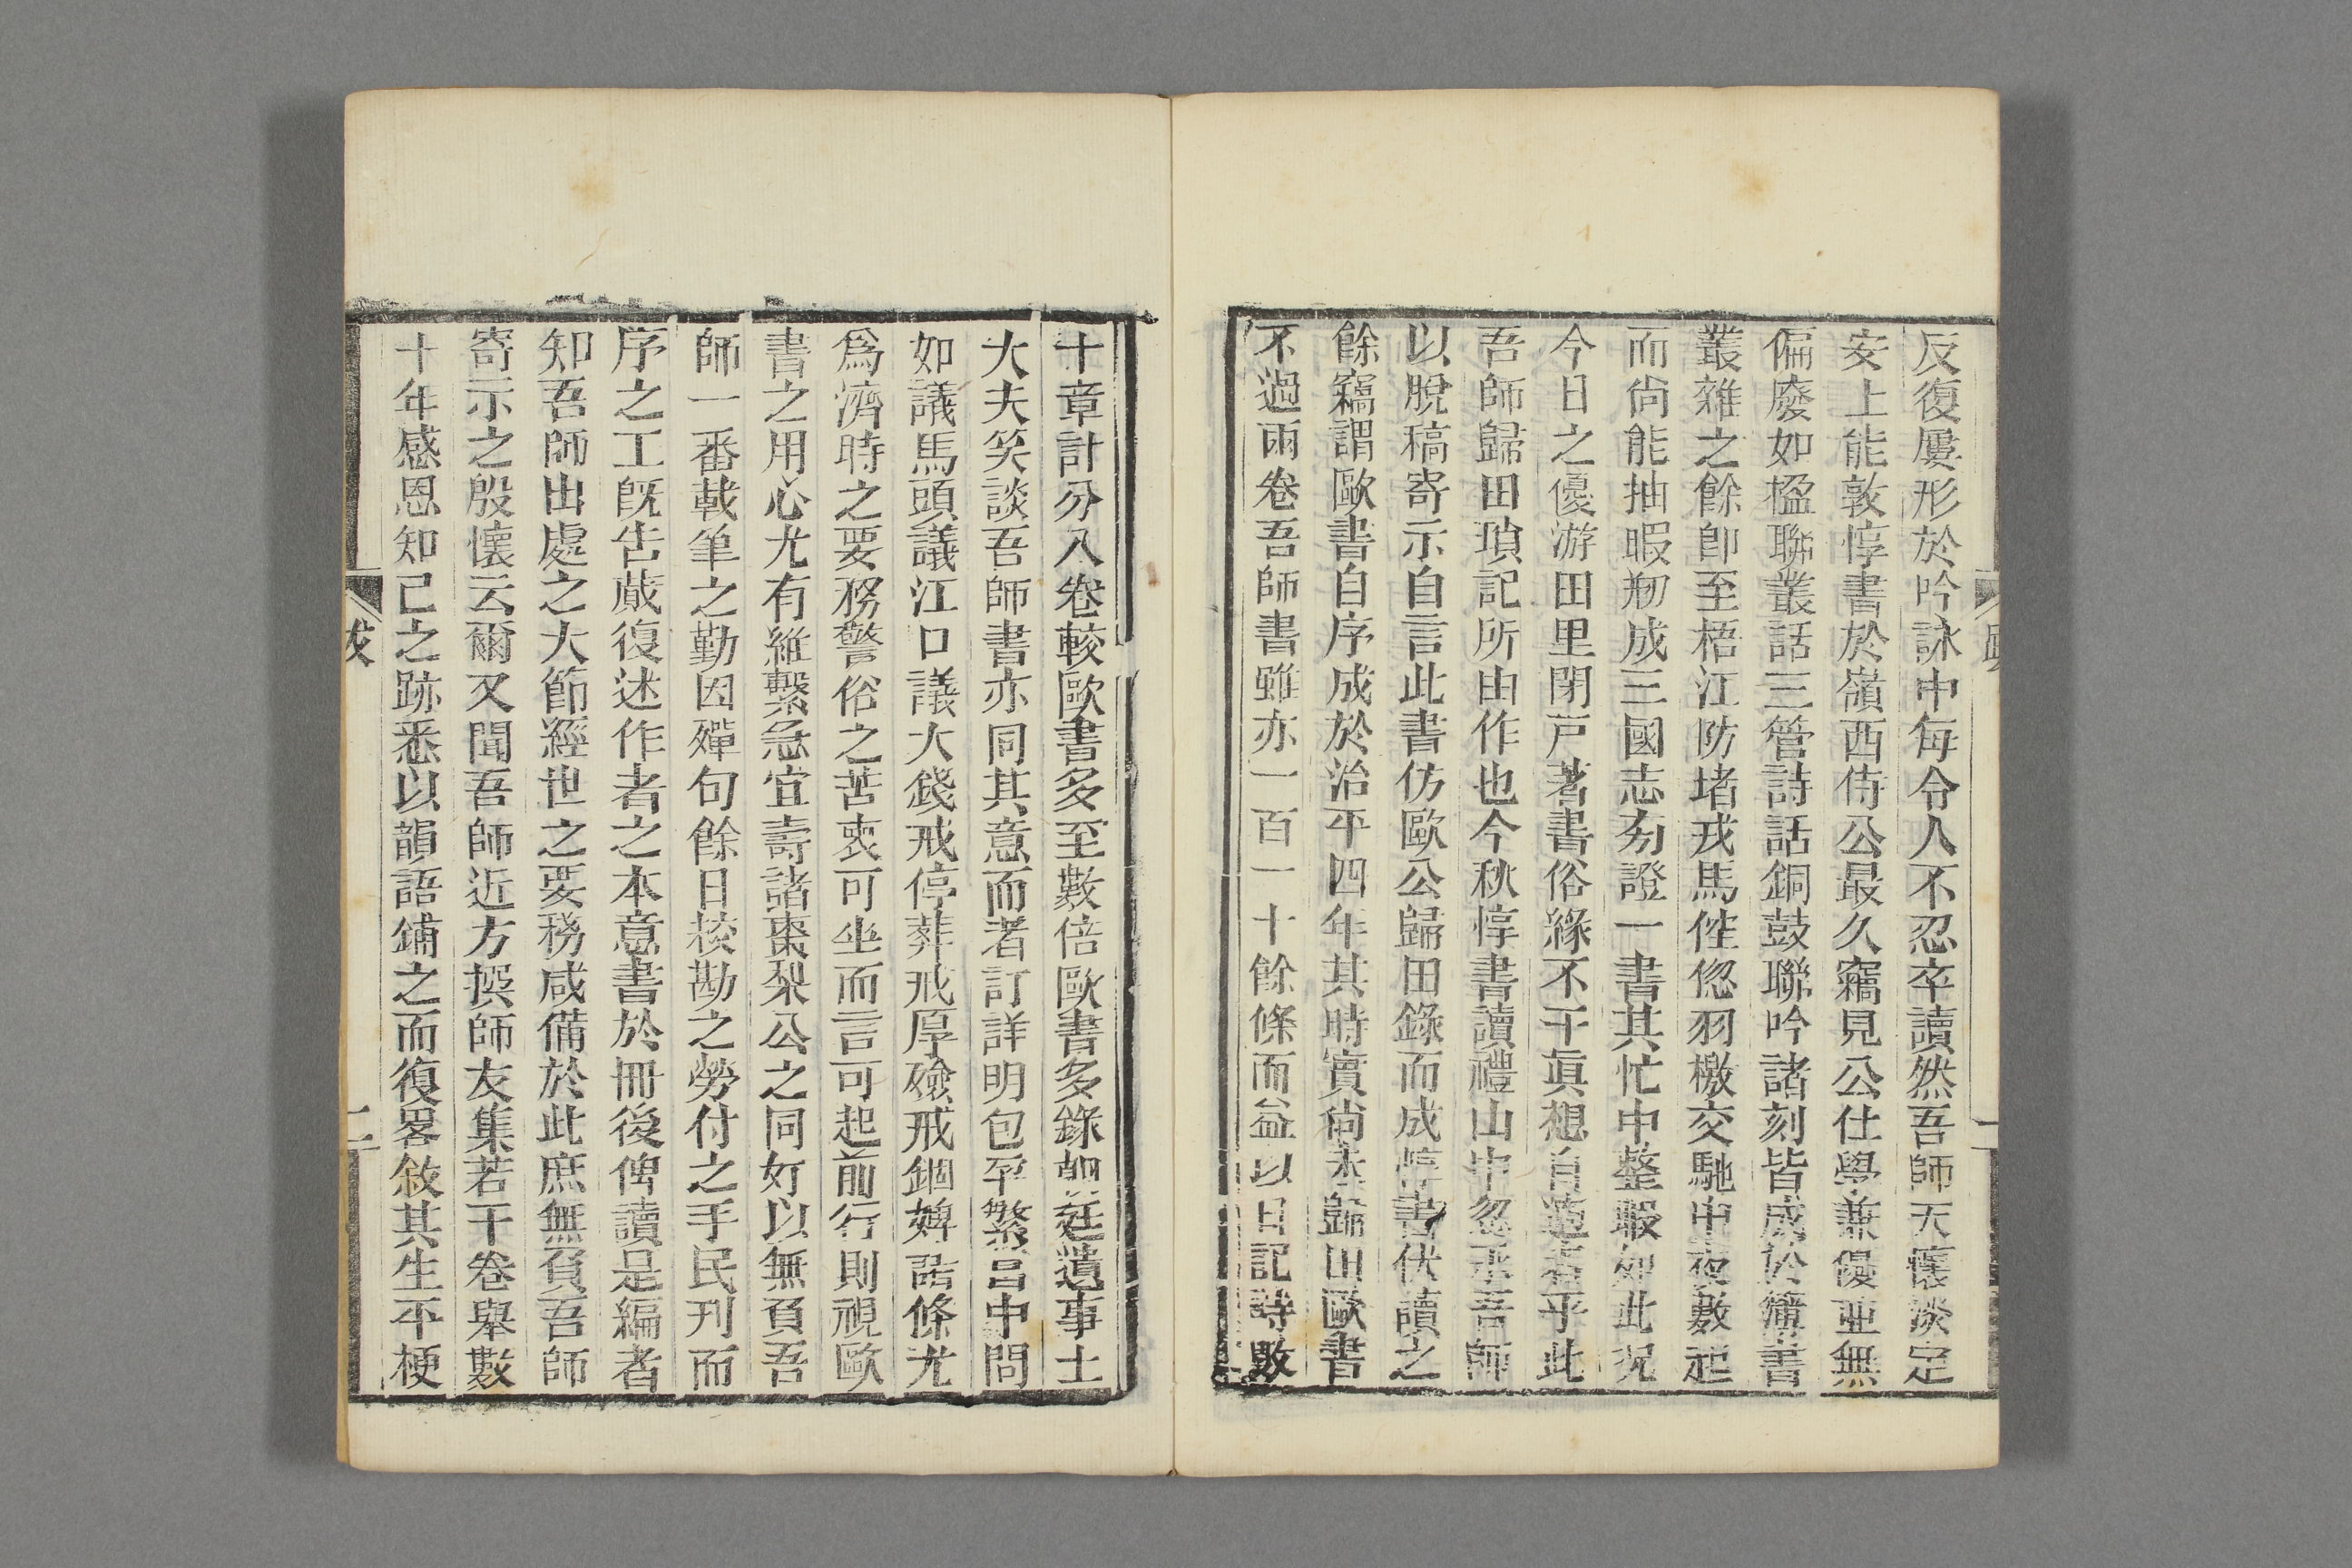 反復屢形於吟詠中每令人不忍卒讀然吾師天懷淡定
安上能敦惇書於嶺西侍公最久竊見公仕學兼優亟無
偏廢如楹聯叢話三管詩話銅鼓聯吟諸刻皆成於簿書
叢雜之餘卽至梧江防堵戎馬倥偬羽檄交馳中夜數起
而尙能抽暇剏成三國志旁證一書其忙中整暇如此況
今日之優游田里閉戸著書俗緣不干眞想自適者乎此
吾師歸田瑣記所由作也今秋惇書讀禮山中忽承吾師
以脫稿寄示自言此書仿歐公歸田錄而成惇書伏讀之
餘竊謂歐書自序成於治平四年其時實尙未歸田歐書
不過兩卷吾師書雖亦一百一十餘條而益以日記詩數
十章計分八卷較歐書多至數倍歐書多錄朝廷遺事士
大夫笑談吾師書亦同其意而考訂詳明包孕繁富中間
如議馬頭議江口議大錢戒停葬戒厚殮戒錮婢諸條尤
爲濟時之要務警俗之苦衷可坐而言可起而行則視歐
書之用心尤有維繫急宜壽諸棗梨公之同好以無負吾
師一番載筆之勤因殫旬餘日校勘之勞付之手民刋而
序之工旣告蕆復述作者之本意書於冊後俾讀是編者
知吾師出處之大節經世之要務咸備於此庶無負吾師
寄示之殷懷云爾又聞吾師近方撰師友集若干卷舉數
十年感恩知己之跡悉以韻語鋪之而復畧敘其生平梗
跋
二